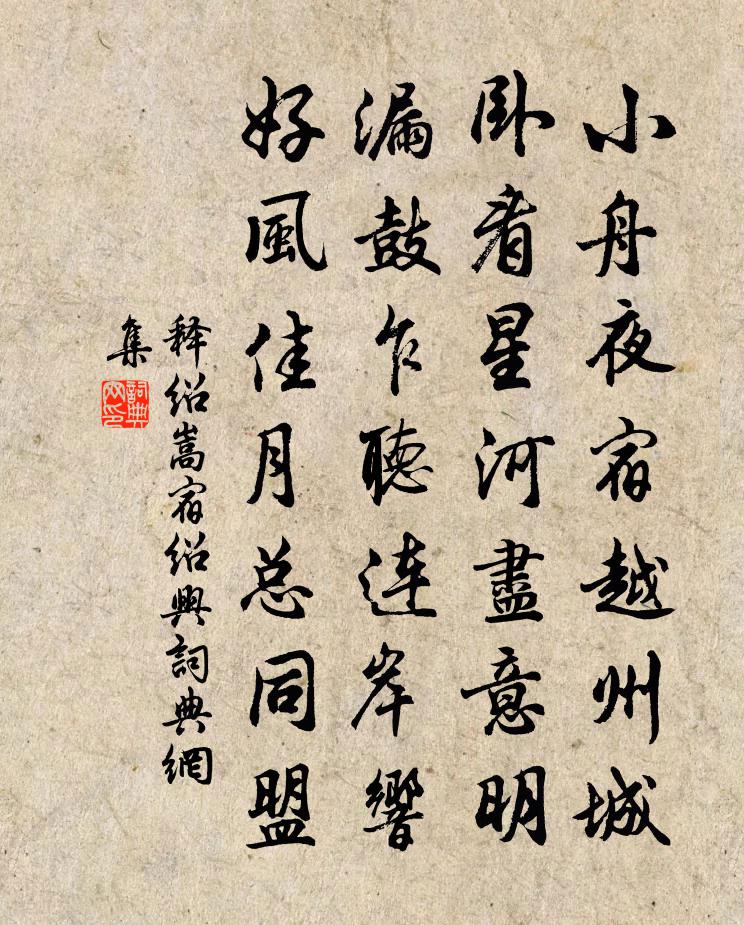 小舟夜宿越州城
卧看星河盡意明
漏鼓乍聽連岸響
好風佳月总同盟
释绍嵩宿绍興詞典網
集
詞典網印